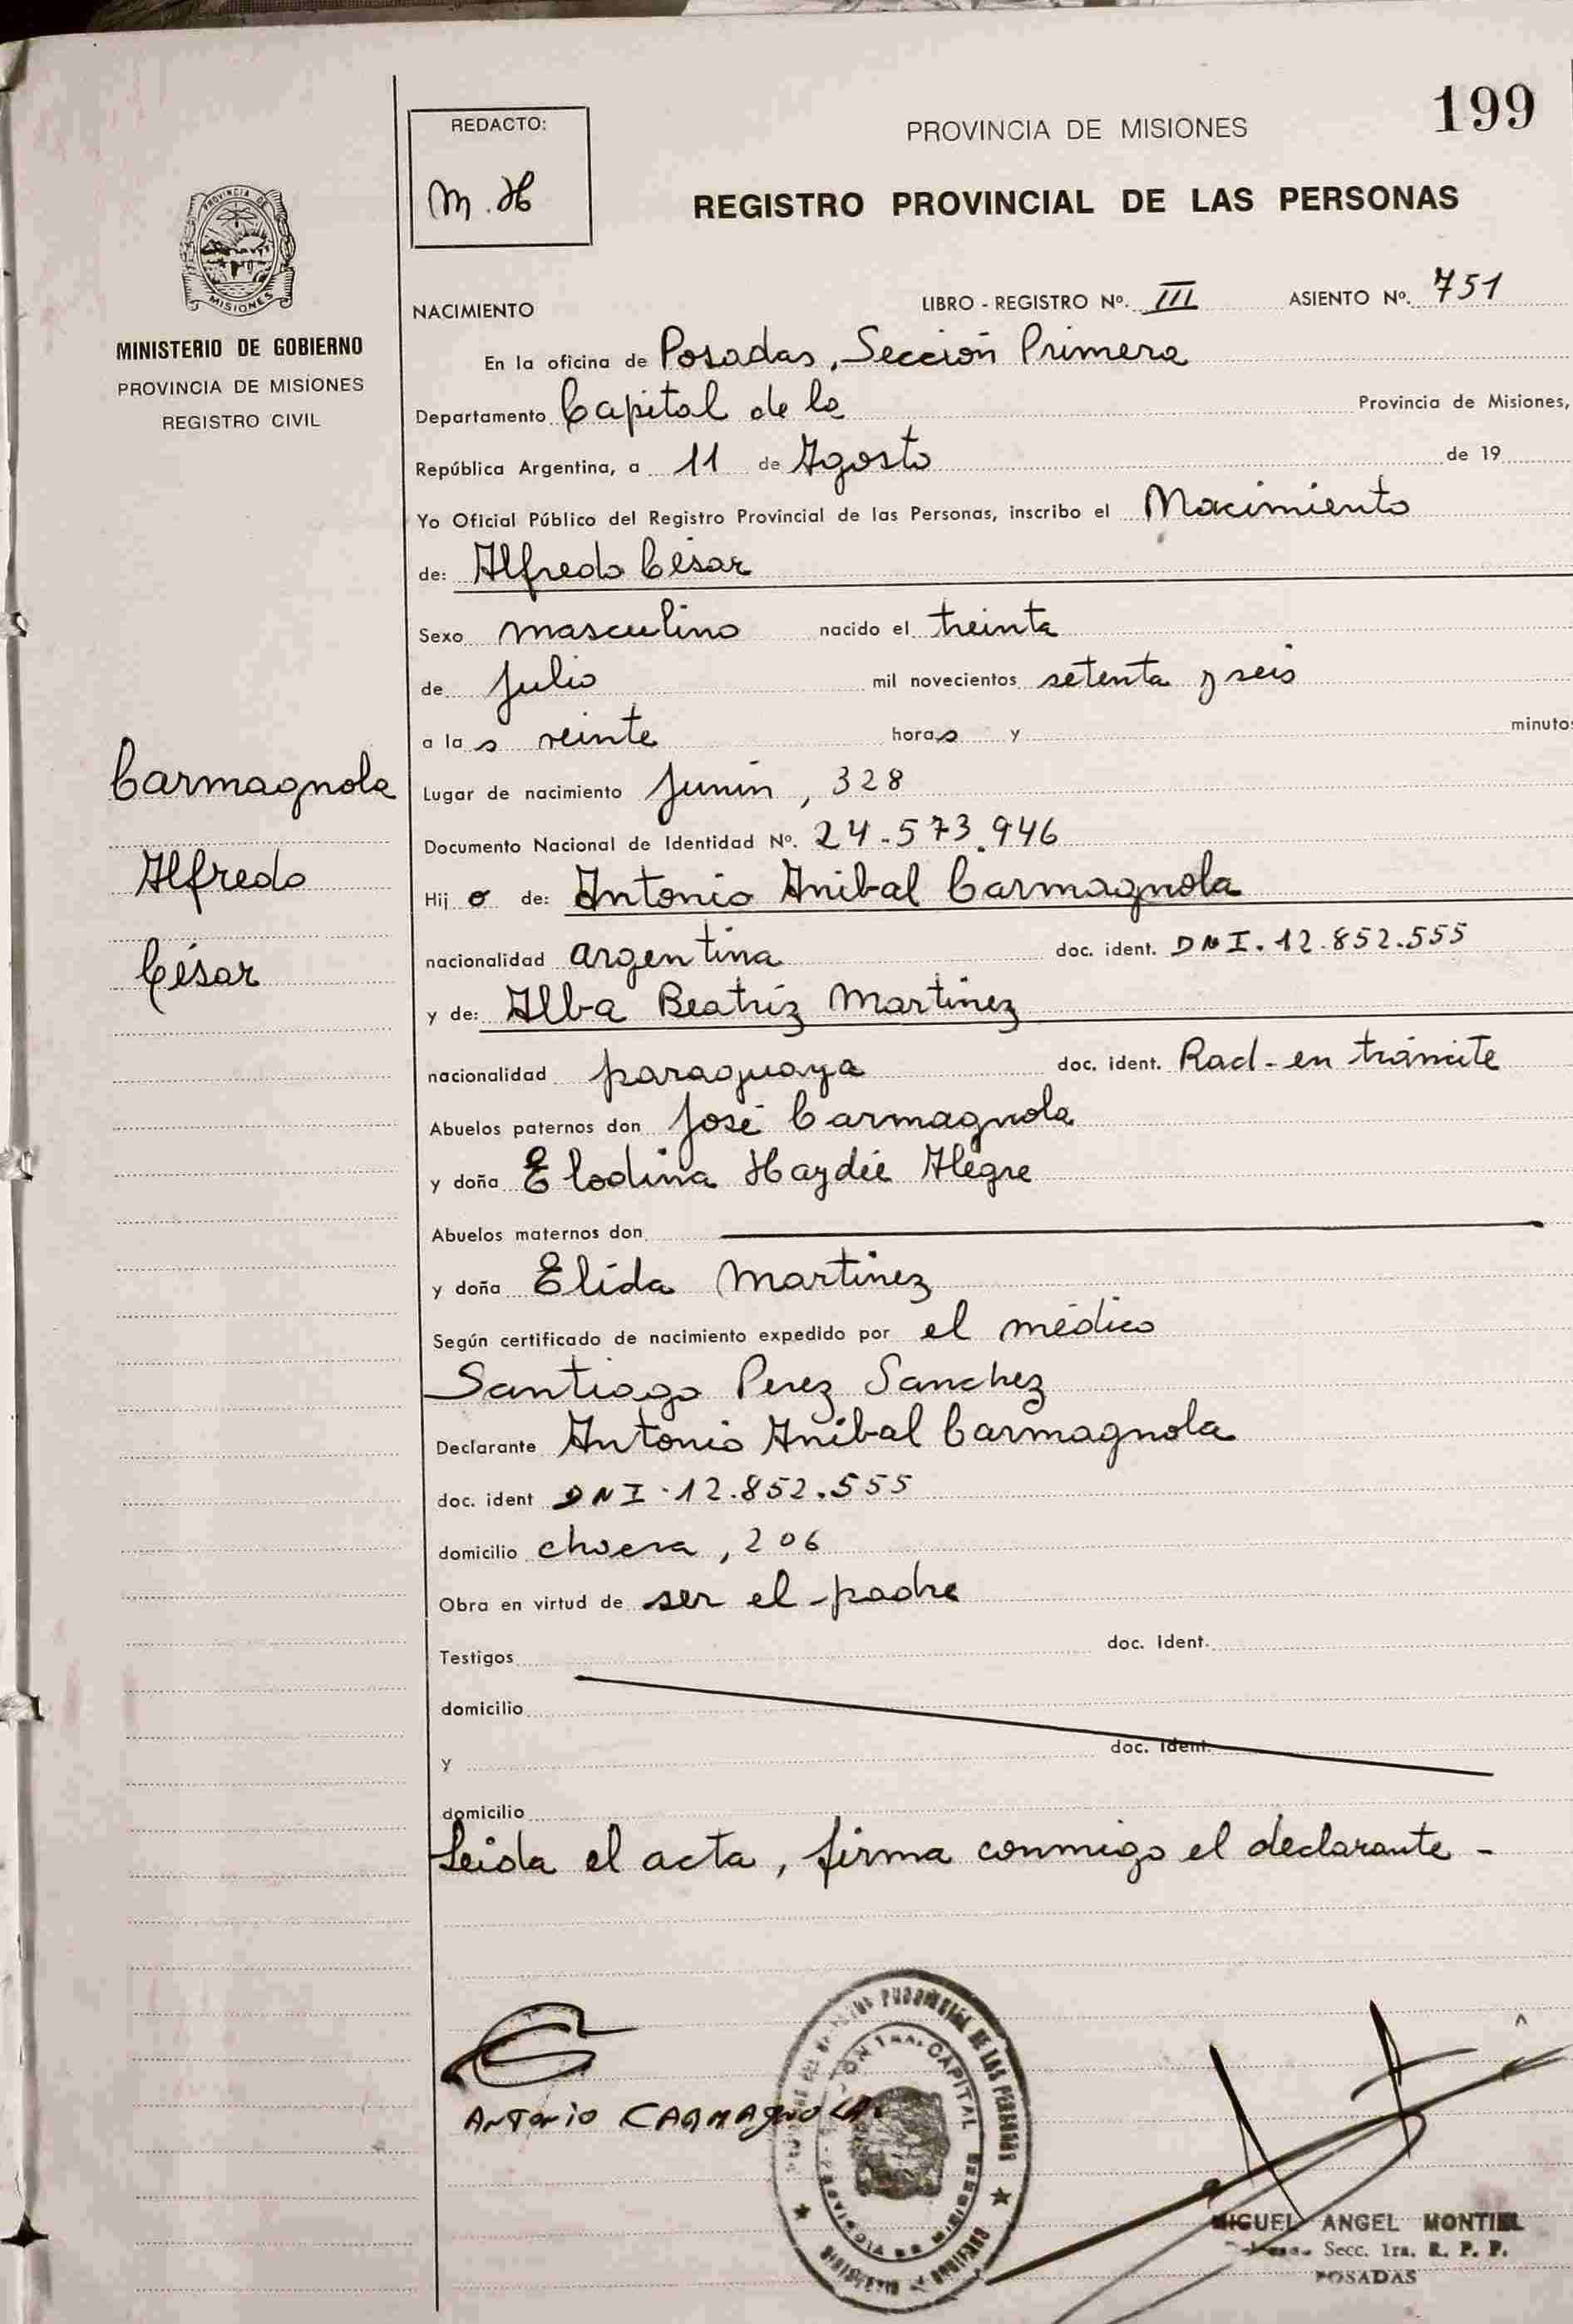 199
REDACTO:
M. H
PROVINCIA DE MISIONES
REGISTRO PROVINCIAL DE LAS PERSONAS
PROVINCIA DE
MISIONES
MINISTERIO DE GOBIERNO
PROVINCIA DE MISIONES
REGISTRO CIVIL
NACIMIENTO LIBRO - REGISTRO Nº. III ASIENTO Nº. 751
En la oficina de Posadas, Sección Primera
Departamento Capital de la Provincia de Misiones,
República Argentina, a 11 de Agosto de 19
Yo Oficial Público del Registro Provincial de las Personas, inscribo el Nacimiento
de: Alfredo César
Sexo masculino nacido el treinta
de julio mil novecientos setenta y seis
a las veinte horas y minutos
Carmagnola
Alfredo
César
Lugar de nacimiento Junin, 328
Documento Nacional de Identidad Nº. 24.573.946
Hijo de: Antonio Anibal Carmagnola
nacionalidad argentina doc. ident. DNI. 12.852.555
y de: Alba Beatriz Martinez
nacionalidad paraguaya doc. ident. Rad-en trámite
Abuelos paternos don José Carmagnola
y doña Elodina Haydée Alegre
Abuelos maternos don
y doña Elida Martinez
Según certificado de nacimiento expedido por el médico
Santiago Perez Sanchez
Declarante Antonio Anibal Carmagnola
doc. ident DNI. 12.852.555
domicilio 206
Obra en virtud de ser el padre
Testigos doc. Ident.
domicilio
y doc. Ident.
domicilio
Leida el acta, firma conmigo el declarante -
ANTONIO CARMAGNOLA
CAPITAL
DE LAS PERSONAS
MIGUEL ANGEL MONTIEL
Secc. 1ra. R. P. P.
POSADAS